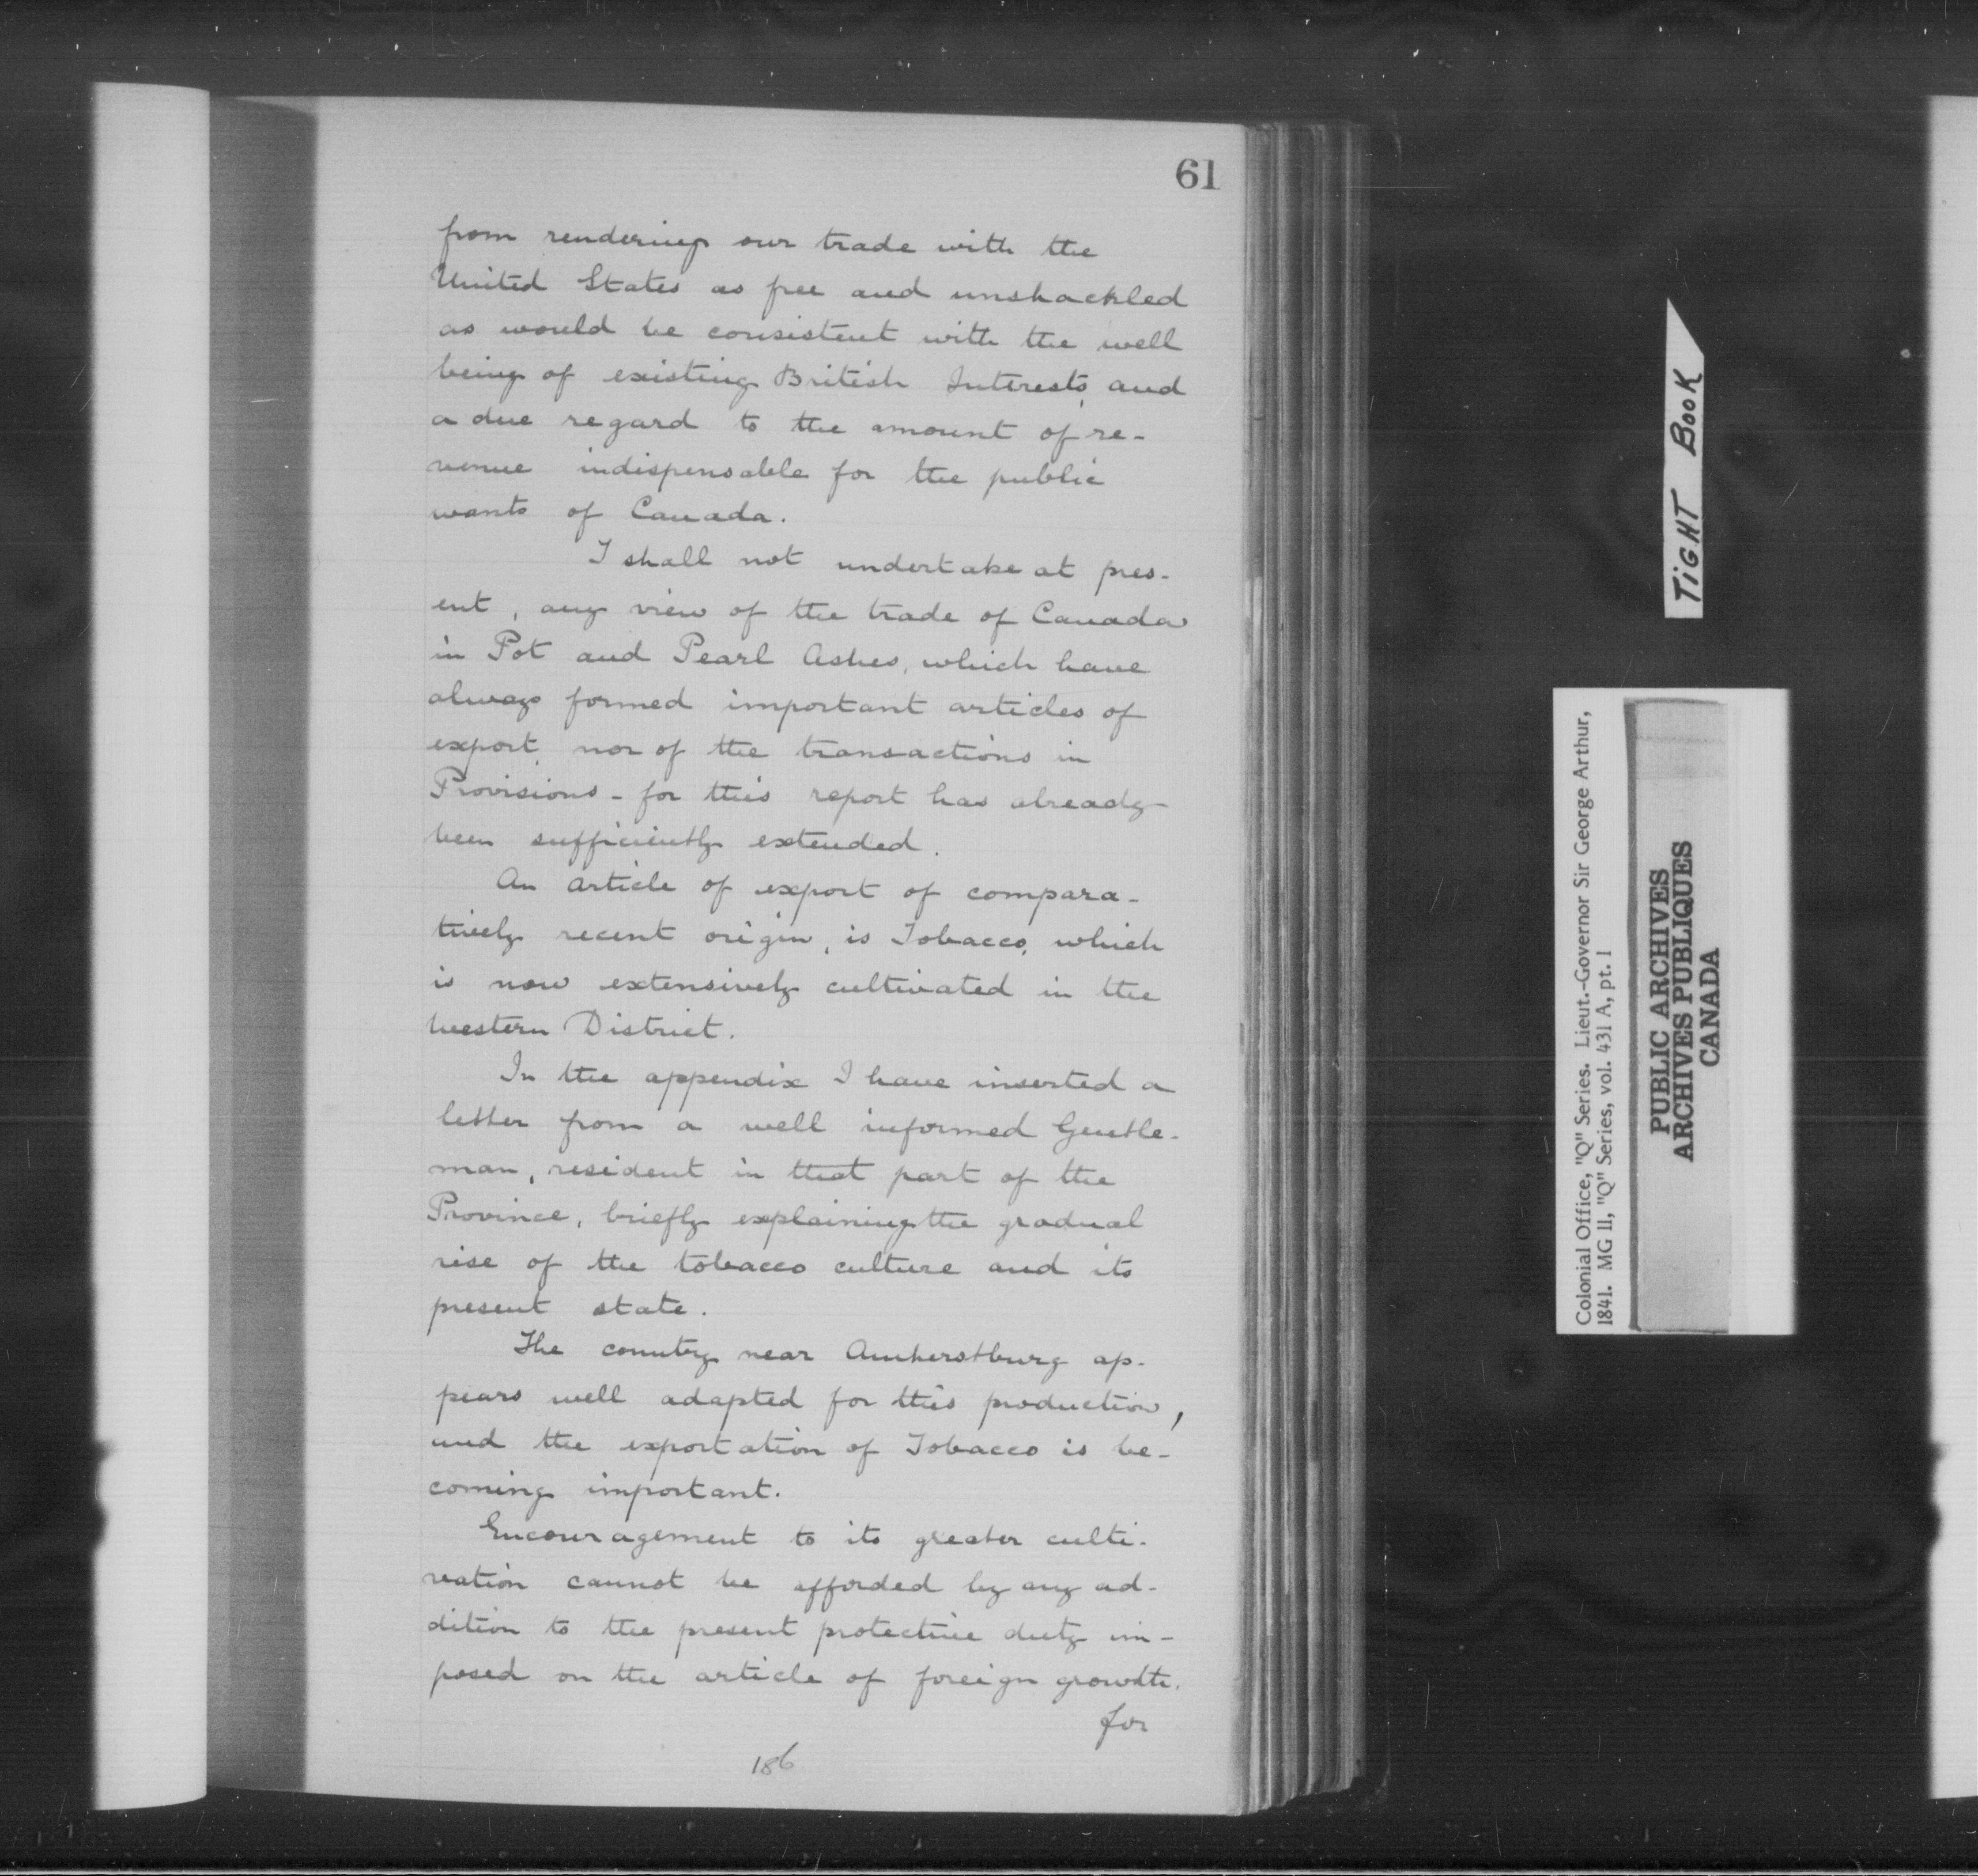 61
from rendering our trade with the
United States as free and unshackled
as would be consistent with the well
being of existing British Interests, and
a due regard to the amount of re-
venue indispensable for the public
wants of Canada.
I shall not undertake at pres-
ent, any view of the trade of Canada
in Pot and Pearl Ashes, which have
always formed important articles of
export, nor of the transactions in
Provisions - for this report has already
been sufficiently extended.
An article of export of compara-
tively recent origin, is Tobacco, which
is now extensively cultivated in the
Western District.
In the appendix I have inserted a
letter from a well informed Gentle-
man, resident in that part of the
Province, briefly explaining the gradual
rise of the tobacco culture and its
present state.
The country near Amherstburg ap-
pears well adapted for this production,
and the exportation of Tobacco is be-
coming important.
Encouragement to its greater culti-
vation cannot be afforded by any ad-
dition to the present protective duty im-
posed on the article of foreign growth.
for
186
TIGHT BOOK
Colonial Office, "Q" Series. Lieut.-Governor Sir George Arthur,
1841. MG 11, "Q" Series, vol. 431 A, pt. 1
PUBLIC ARCHIVES
ARCHIVES PUBLIQUES
CANADA